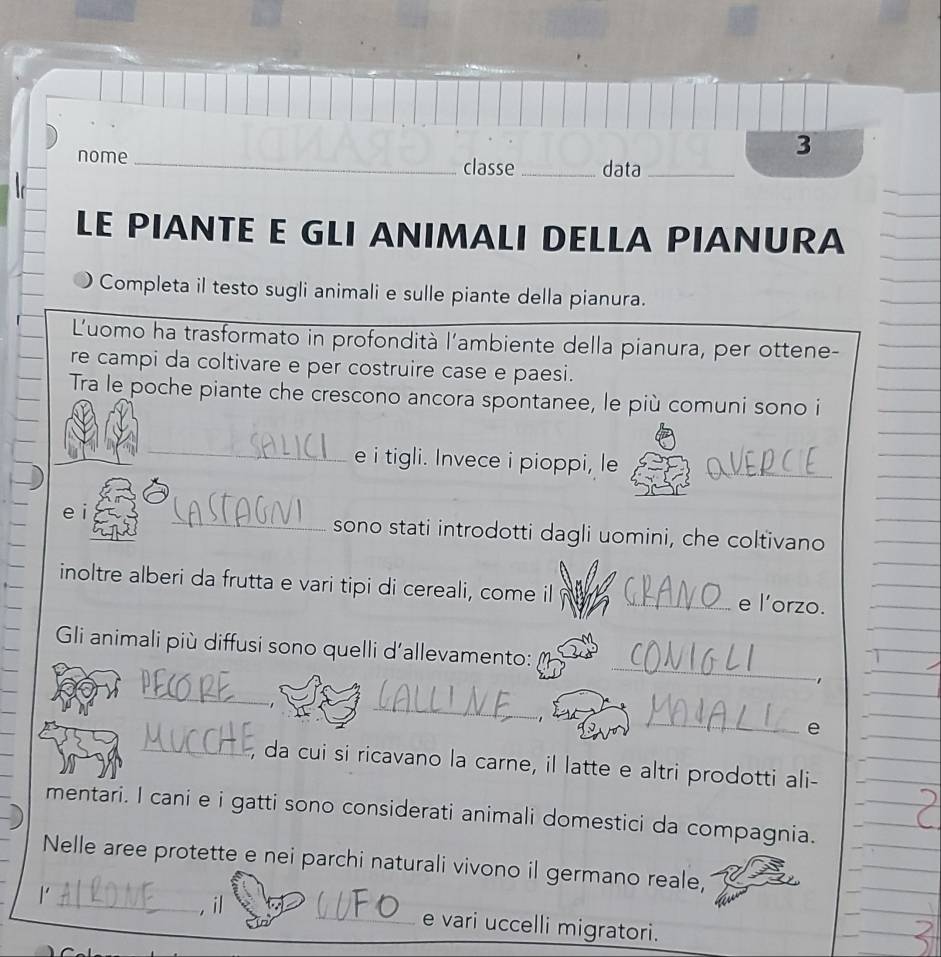 3
nome classe data
LE PIANTE E GLI ANIMALI DELLA PIANURA
Completa il testo sugli animali e sulle piante della pianura.
L'uomo ha trasformato in profondità l'ambiente della pianura, per ottene-
re campi da coltivare e per costruire case e paesi.
Tra le poche piante che crescono ancora spontanee, le più comuni sono i
SALICI e i tigli. Invece i pioppi, le QVERCIE
e i CASTAGNI sono stati introdotti dagli uomini, che coltivano
inoltre alberi da frutta e vari tipi di cereali, come il GRANO e l'orzo.
Gli animali più diffusi sono quelli d'allevamento: CONIGLI,
PECORE, GALLINE, MAIALI e
MUCCHE, da cui si ricavano la carne, il latte e altri prodotti ali-
mentari. I cani e i gatti sono considerati animali domestici da compagnia.
Nelle aree protette e nei parchi naturali vivono il germano reale,
l'AIRONE, il GUFO e vari uccelli migratori.
2
3